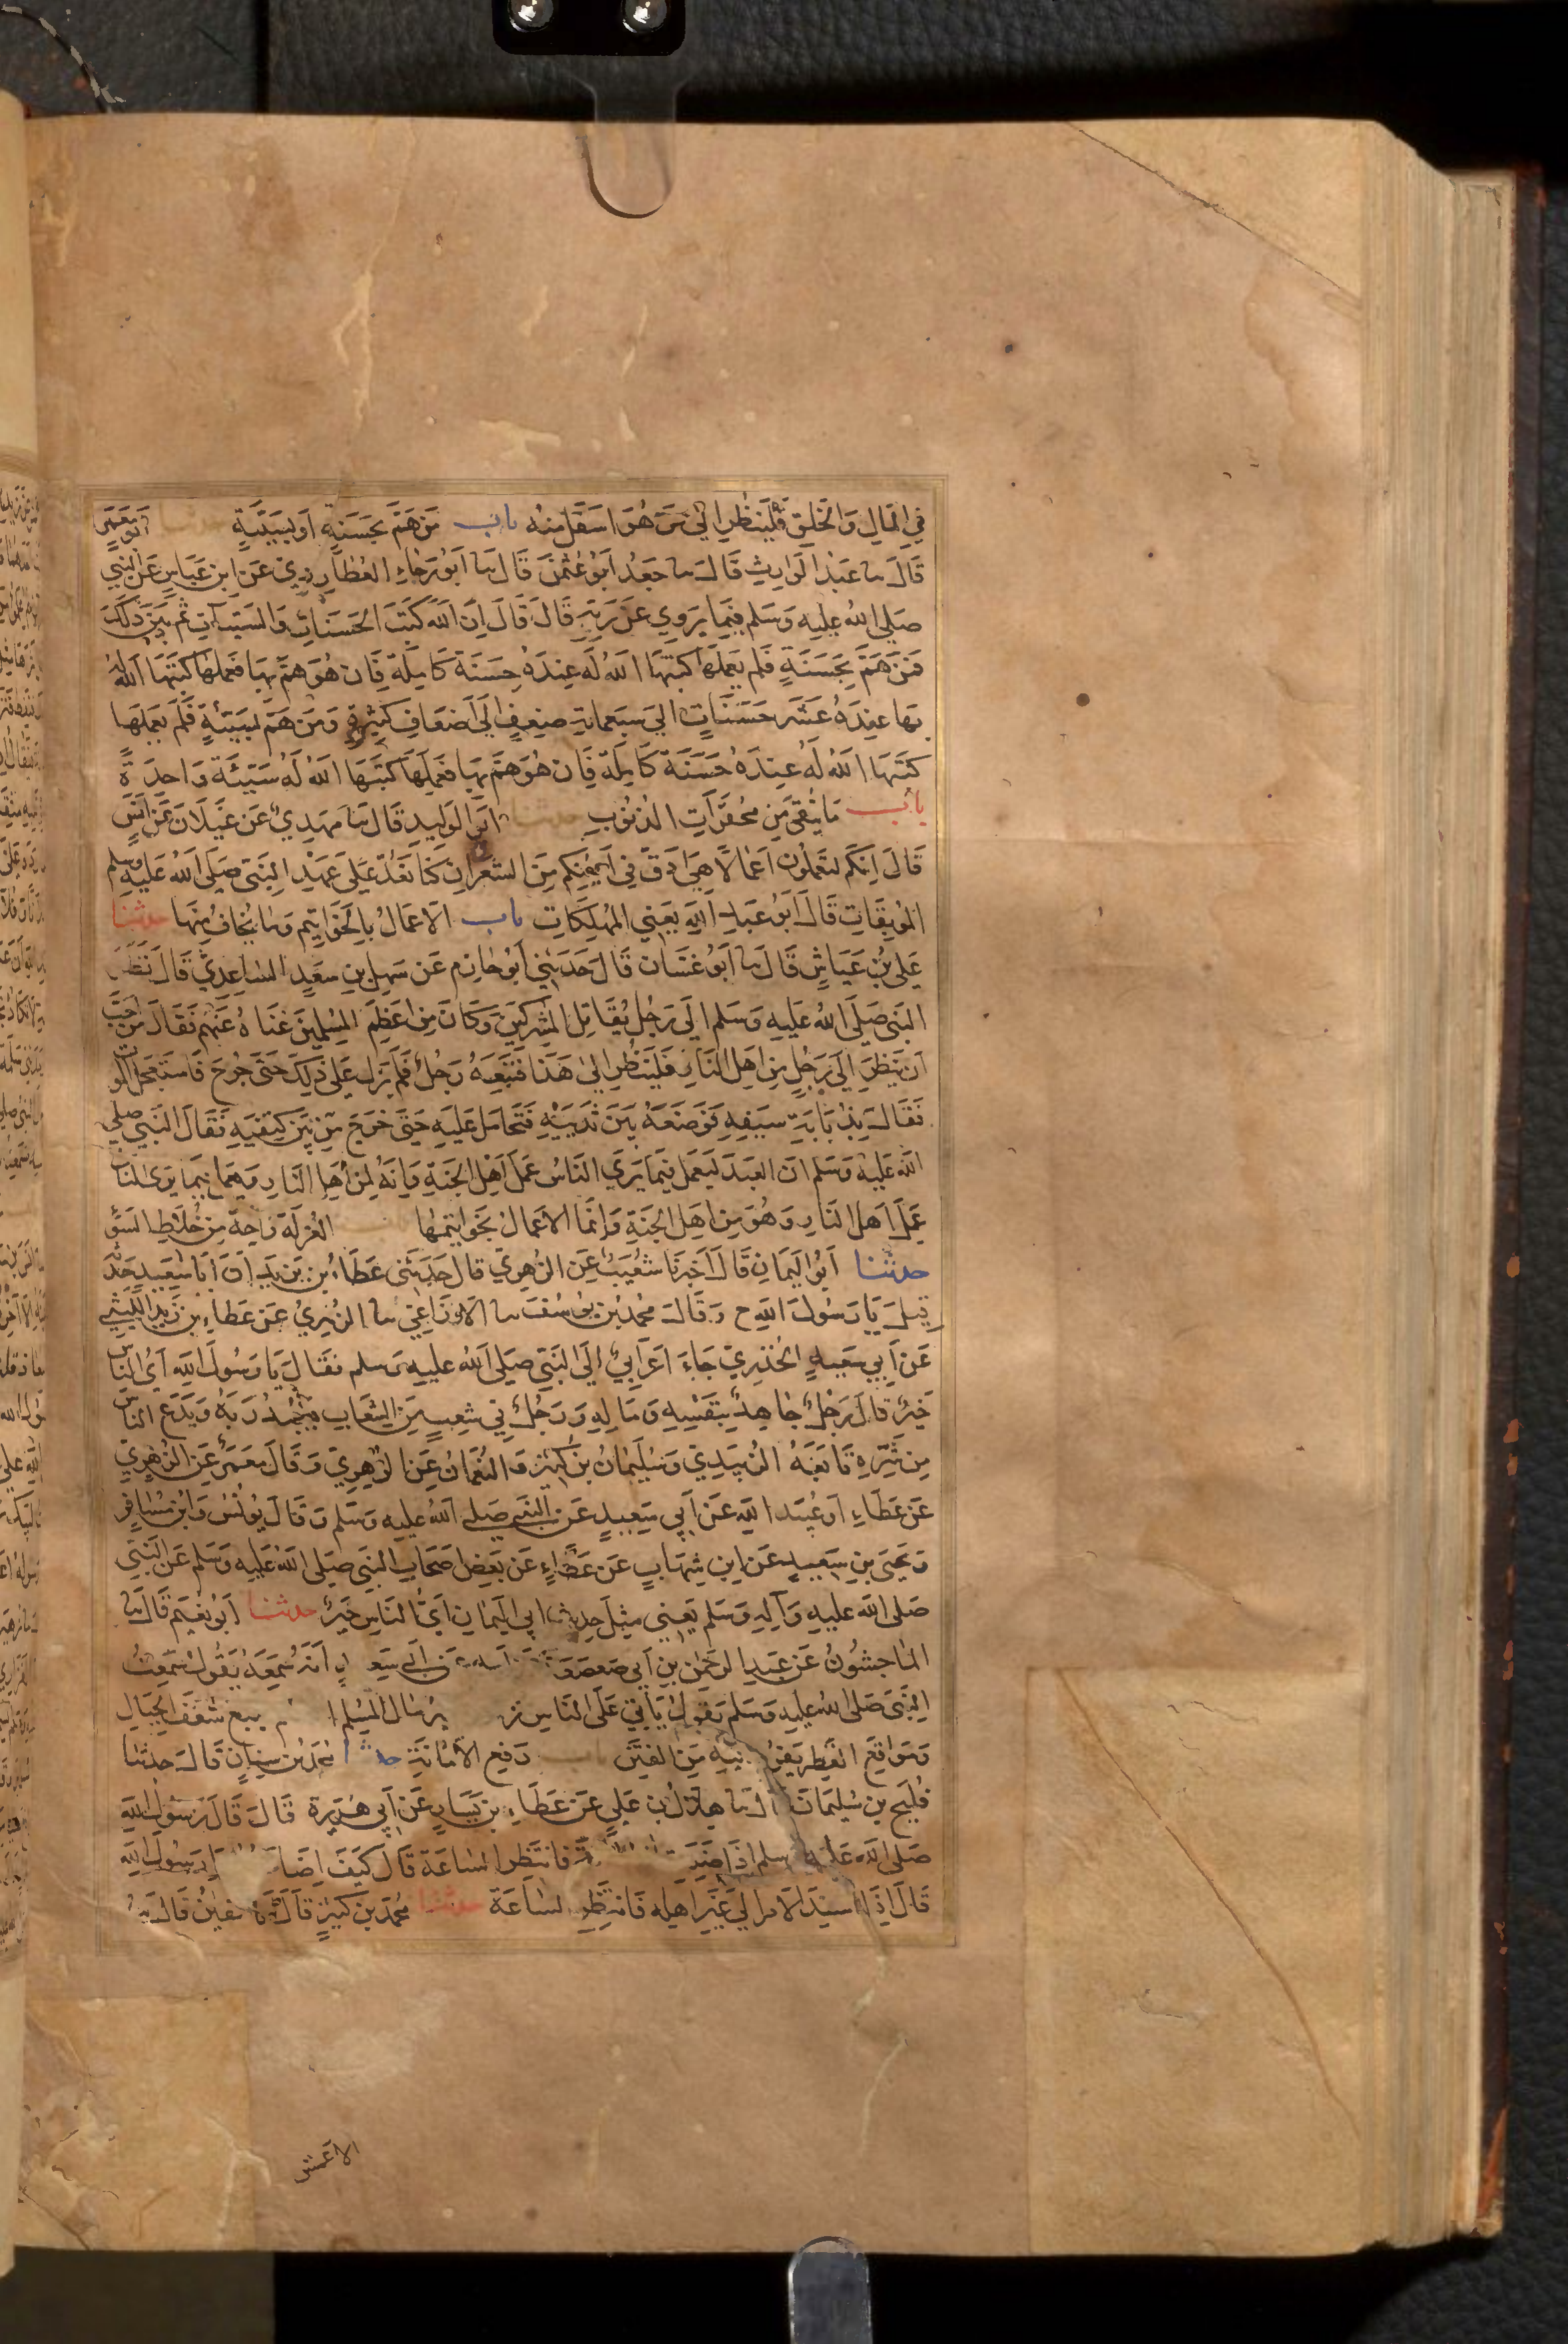 في المال والخلق فلينظر الى من هو اسفل منه باب من هم بحسنة او بسيئة ابو معمر
قال نا عبد الوارث قال نا جعد ابو عثمن قال نا ابو رجاء العطاردي عن ابن عباس عن النبي
صلى الله عليه وسلم فيما يروي عن ربه قال قال ان الله كتب الحسنات والسيئات ثم بين ذلك
فمن هم بحسنة فلم يعملها كتبها الله له عنده حسنة كاملة فان هو هم بها فعملها كتبها الله له
بها عنده عشر حسنات الى سبعمائة ضعف الى اضعاف كثيرة ومن هم بسيئة فلم يعملها
كتبها الله له عنده حسنة كاملة فان هو هم بها فعملها كتبها الله له سيئة واحدة
باب ما يتقى من محقرات الذنوب حدثنا ابو الوليد قال نا مهدي عن غيلان عن انس
قال انكم لتعملون اعمالا هي ادق في اعينكم من الشعر ان كنا نعد على عهد النبي صلى الله عليه وسلم
الموبقات قال ابو عبد الله يعني المهلكات باب الاعمال بالخواتيم وما يخاف منها حدثنا
علي بن عياش قال نا ابو غسان قال حدثني ابو حازم عن سهل بن سعد الساعدي قال نظر
النبي صلى الله عليه وسلم الى رجل يقاتل المشركين وكان من اعظم المسلمين غناء عنهم فقال من احب
ان ينظر الى رجل من اهل النار فلينظر الى هذا فتبعه رجل فلم يزل على ذلك حتى جرح فاستعجل الموت
فقال بذبابة سيفه فوضعه بين ثدييه فتحامل عليه حتى خرج من بين كتفيه فقال النبي صلى
الله عليه وسلم ان العبد ليعمل فيما يرى الناس عمل اهل الجنة وانه لمن اهل النار ويعمل فيما يرى الناس
عمل اهل النار وهو من اهل الجنة وانما الاعمال بخواتيمها العزلة راحة من خلاط السوء
حدثنا ابو اليمان قال اخبرنا شعيب عن الزهري قال حدثني عطاء بن يزيد ان ابا سعيد حدثه
قيل يا رسول الله ح وقال محمد بن يوسف نا الاوزاعي نا الزهري عن عطاء بن يزيد الليثي
عن ابي سعيد الخدري جاء اعرابي الى النبي صلى الله عليه وسلم فقال يا رسول الله اي الناس
خير قال رجل جاهد بنفسه وماله ورجل في شعب من الشعاب يعبد ربه ويدع الناس
من شره تابعه الزبيدي وسليمان بن كثير والنعمان عن الزهري وقال معمر عن الزهري
عن عطاء او عبيد الله عن ابي سعيد عن النبي صلى الله عليه وسلم وقال يونس وابن مسافر
ويحيى بن سعيد عن ابن شهاب عن عطاء عن بعض اصحاب النبي صلى الله عليه وسلم عن النبي
صلى الله عليه وآله وسلم يعني مثل حديث ابي اليمان اي الناس خير حدثنا ابو نعيم قال نا
الماجشون عن عبد الرحمن بن ابي صعصعة عن ابيه عن ابي سعيد انه سمعه يقول سمعت
النبي صلى الله عليه وسلم يقول يأتي على الناس خير مال المسلم يتبع شعف الجبال
ومواقع القطر يفر بدينه من الفتن باب رفع الامانة حدثنا محمد بن سنان قال حدثنا
فليح بن سليمان قال نا هلال بن علي عن عطاء بن يسار عن ابي هريرة قال قال رسول الله
صلى الله عليه وسلم اذا ضيعت فانتظر الساعة قال كيف اضا يا رسول الله
قال اذا اسند الامر الى غير اهله فانتظر الساعة حدثنا محمد بن كثير قال نا سفين قال نا
الاعمش